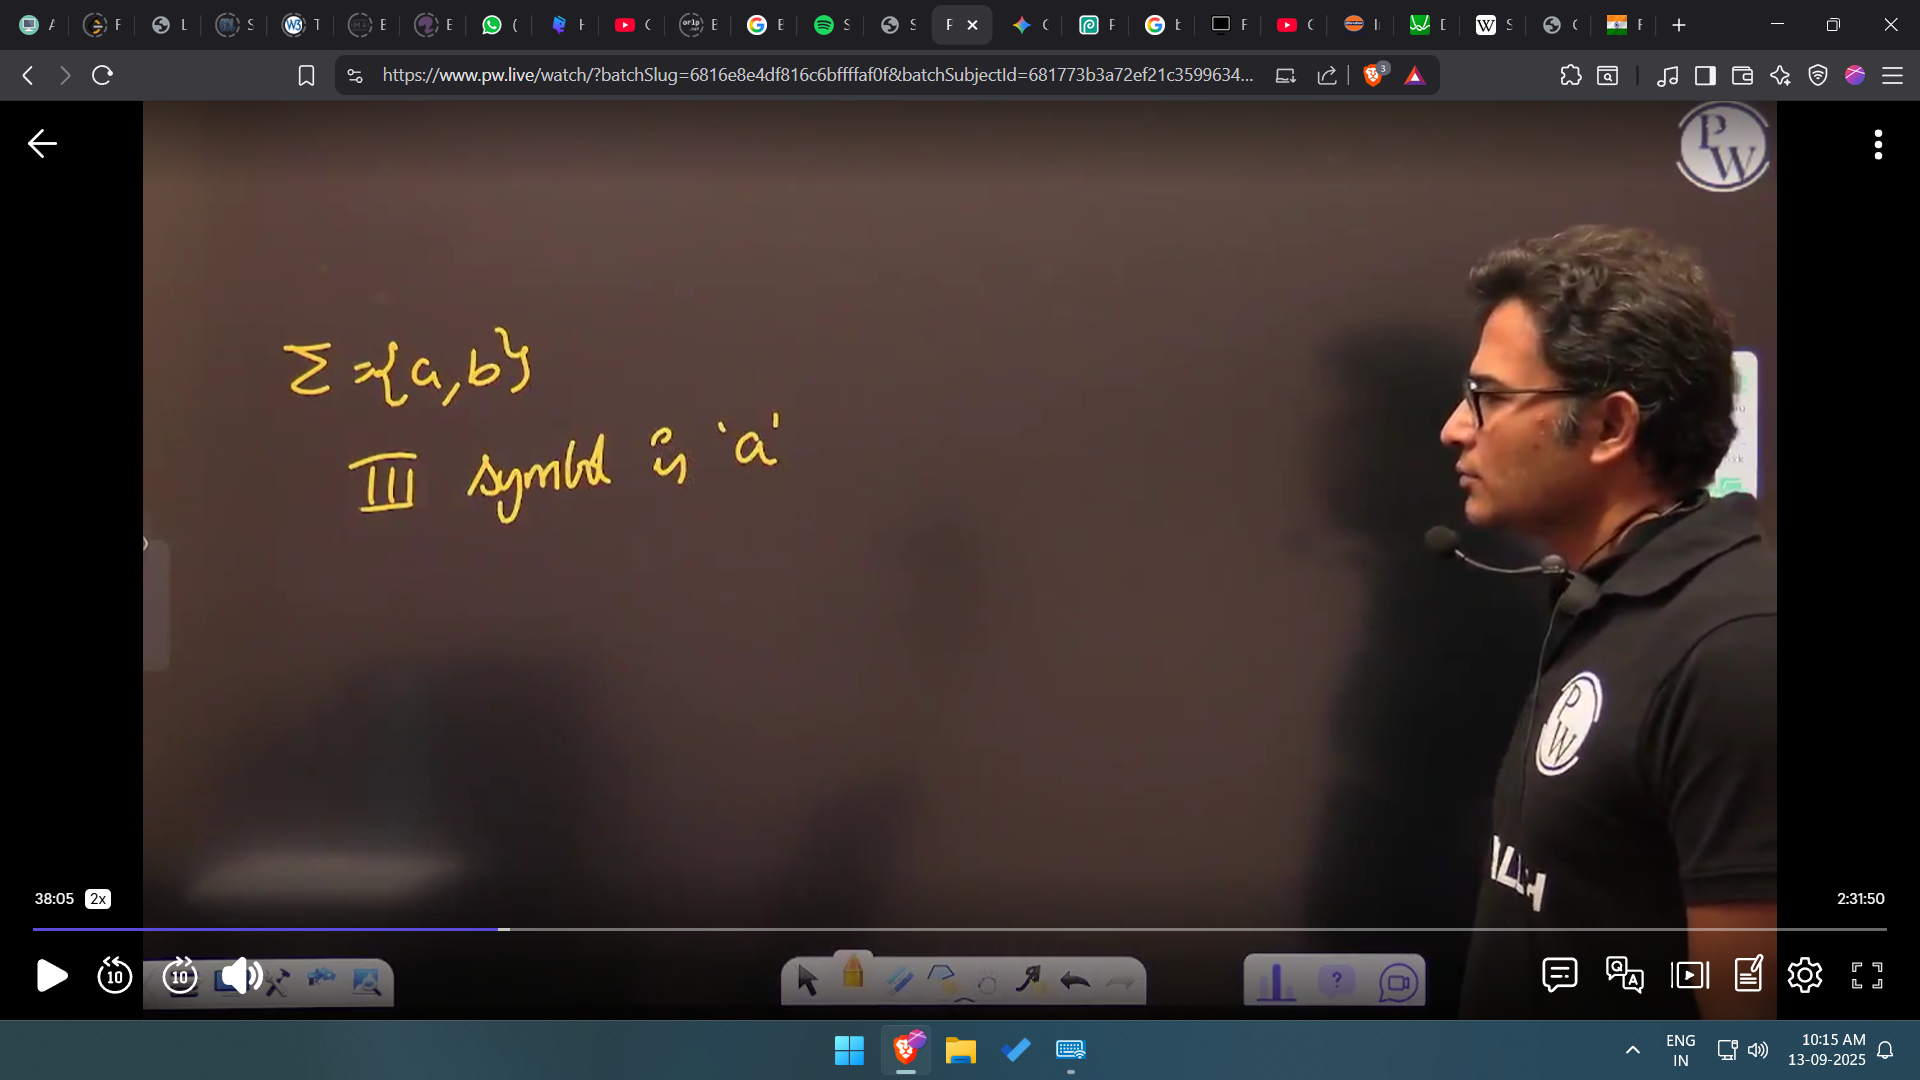 https://www.pw.live/watch/?batchSlug=6816e8e4df816c6bffffaf0f&batchSubjectId=681773b3a72ef21c3599634...
3
PW
Σ={a,b}
III symbol is 'a'
PW
38:05 2x
2:31:50
10 10
ENG
IN
10:15 AM
13-09-2025